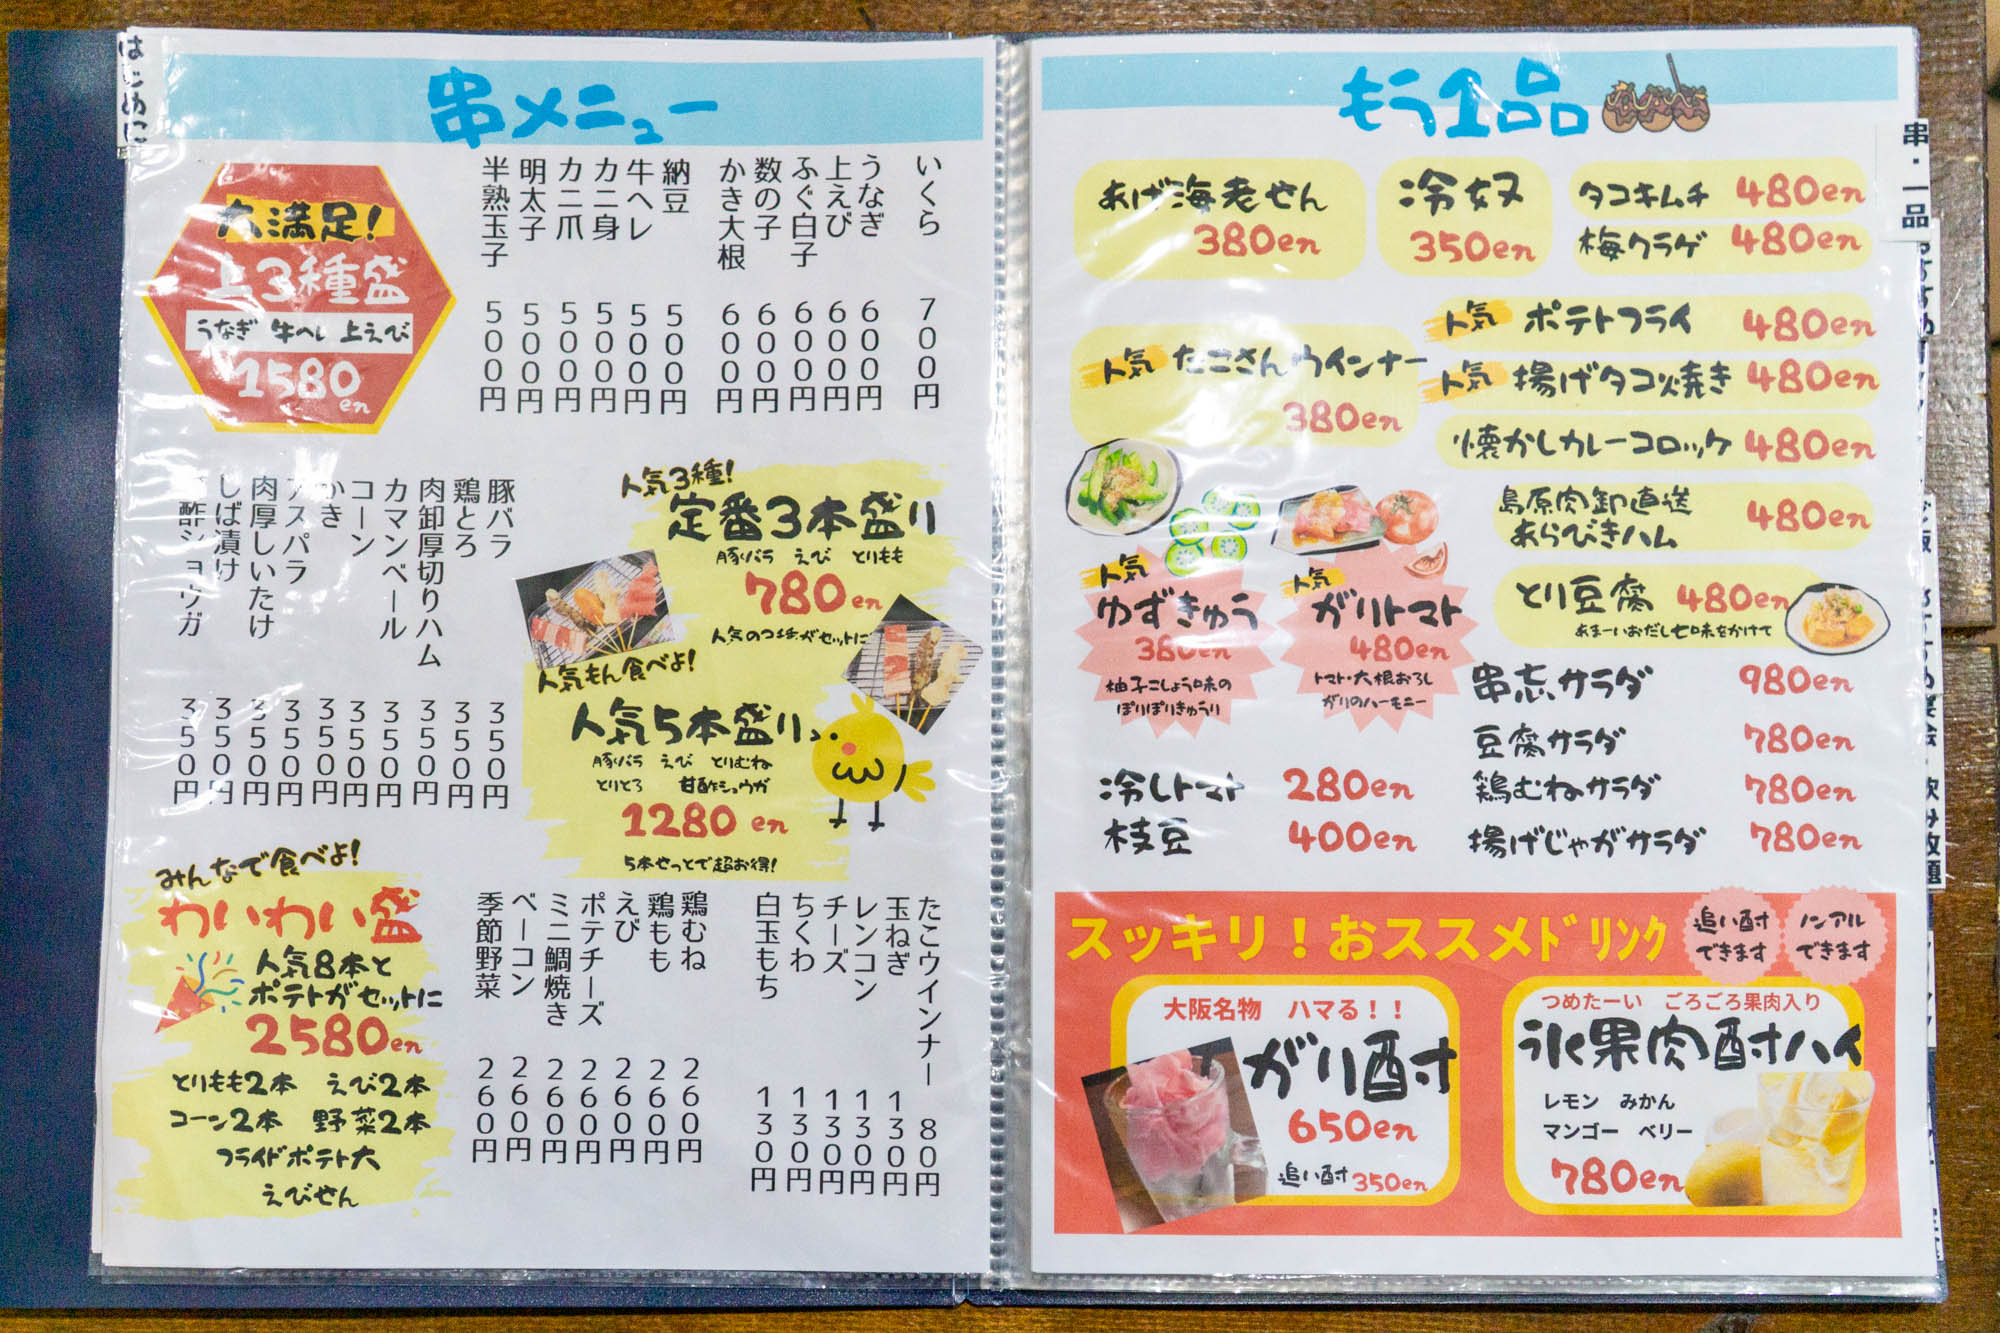 はじめに
串メニュー
大満足!
上3種盛
うなぎ 牛ヘレ 上えび
1580en
いくら 700円
うなぎ 600円
上えび 600円
ふぐ白子 600円
数の子 600円
かき大根 600円
納豆 500円
牛ヘレ 500円
カニ身 500円
カニ爪 500円
明太子 500円
半熟玉子 500円
人気3種!
定番3本盛り
豚バラ えび とりもも
780en
人気もん食べよ!
人気5本盛り
豚バラ えび とりむね
とりとろ 甘酢ショウガ
1280en
5本せっとで超お得!
豚バラ 350円
鶏とろ 350円
肉卸厚切りハム 350円
カマンベール 350円
コーン 350円
かき 350円
アスパラ 350円
肉厚しいたけ 350円
しば漬け 350円
酢ショウガ 350円
みんなで食べよ!
わいわい盛
人気8本と
ポテトがセットに
2580en
とりもも2本 えび2本
コーン2本 野菜2本
フライドポテト大
えびせん
たこウインナー 80円
玉ねぎ 130円
レンコン 130円
チーズ 130円
ちくわ 130円
白玉もち 130円
鶏むね 260円
鶏もも 260円
えび 260円
ポテチーズ 260円
ミニ鯛焼き 260円
ベーコン 260円
季節野菜 260円
もう1品
あげ海老せん
380en
冷奴
350en
タコキムチ 480en
梅クラゲ 480en
人気 たこさんウインナー
380en
人気 ポテトフライ 480en
人気 揚げタコ焼き 480en
懐かしカレーコロッケ 480en
島原肉卸直送
あらびきハム 480en
人気
ゆずきゅう
380en
柚子こしょう味の
ぽりぽりきゅうり
人気
ガリトマト
480en
トマト・大根おろし
ガリのハーモニー
とり豆腐 480en
あまーいおだし七味をかけて
串忘サラダ 980en
豆腐サラダ 780en
鶏むねサラダ 780en
揚げじゃがサラダ 780en
冷しトマト 280en
枝豆 400en
スッキリ!おススメドリンク
追い酎
できます
ノンアル
できます
大阪名物 ハマる!!
がり酎
650en
追い酎 350en
つめたーい ごろごろ果肉入り
氷果肉酎ハイ
レモン みかん
マンゴー ベリー
780en
串・一品